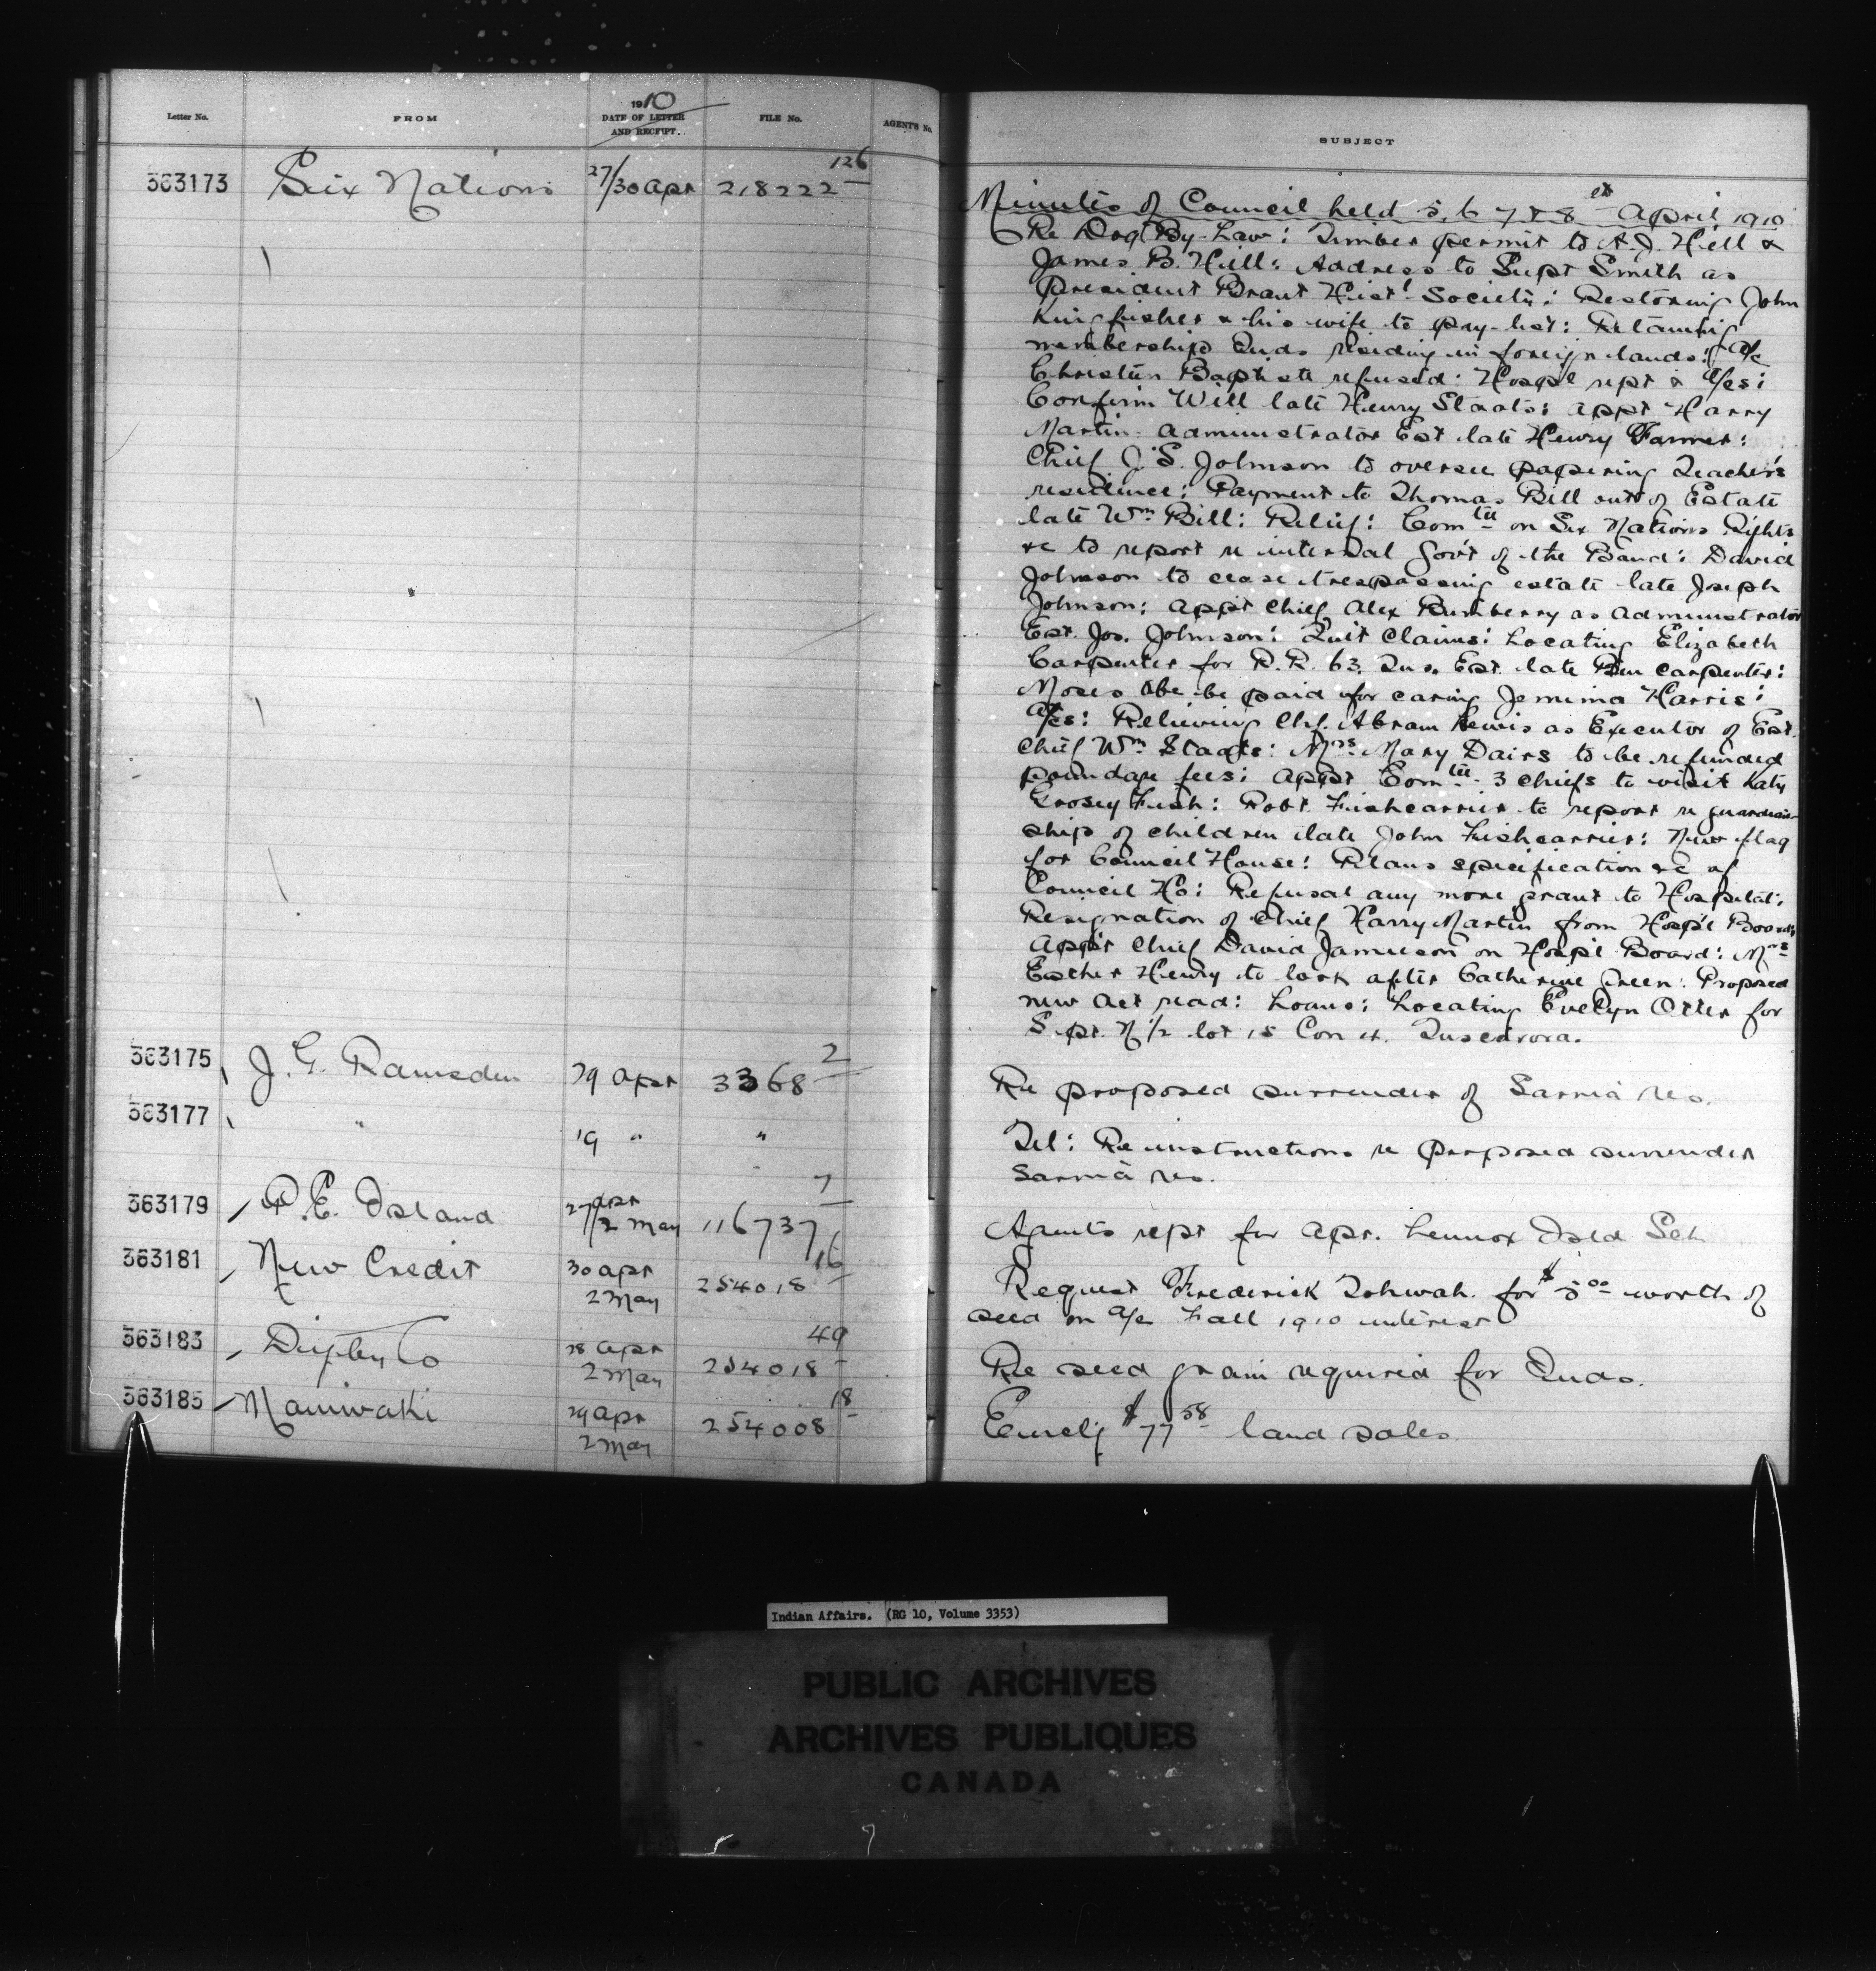 Letter No. FROM 1910 DATE OF LETTER AND RECEIPT. FILE No. AGENT'S No. SUBJECT
363173 Six Nations 27/30 Apr 218222 126
Minutes of Council held 5, 6 7 & 8th April 1910
Re Dog By-Law: Timber permit to A.J. Hill &
James B. Hill: Address to Supt Smith as
President Brant Hist'l Society: Restoring John
Kingfisher & his wife to pay-list: Retaining
membership Inds residing in foreign lands: a/c
Christin Baptiste refused: Hospl rept & a/cs:
Confirm Will late Henry Staats: Appt Harry
Martin administrator Est late Henry Farmer:
Chief J.S. Johnson to oversee papering Teacher's
residence: Payment to Thomas Bill out of Estate
late Wm Bill: Relief: Comtee on Six Nations Rights
&c to report re internal Gov't of the Band: David
Johnson to cease trespassing estate late Joseph
Johnson: App't Chief Alex Bumberry as administrator
Est. Jos. Johnson: Quit Claims: Locating Elizabeth
Carpenter for R.R. 63. Tus. Est. late Ben Carpenter:
Moses to be paid for caring Jemima Harris:
a/cs: Relieving Chf. Abram Lewis as Executor of Est.
Chief Wm Staats: Mrs Mary Davis to be refunded
poundage fees: Appt Comtee 3 chiefs to visit Katy
Fish: Robt Fishcarrier to report re guardian-
ship of children late John Fishcarrier: New flag
for Council House: Plans specification &c of
Council Ho: Refusal any more grant to Hospital:
Resignation of Chief Harry Martin from Hosp'l Board:
App't Chief David Jamieson on Hospl Board: Mrs
Esther Henry to look after Catherine Green: Proposed
new Act read: Loans: Locating Evelyn Otter for
S. pt. N 1/2 lot 15 Con 4. Tuscarora.
363175 J. G. Ramsden 29 Apr 3368 2 Re proposed surrender of Sarnia Res.
363177 " 19 " " Tel: Re instructions re proposed surrender
Sarnia Res.
363179 P. E. Island 27 Apr/2 May 116737 7 Agents rept for Apr. Lennox Isld Sch
363181 New Credit 30 Apr 2 May 254018 16 Request Frederick Tobwah for $5 00 worth of
seed on a/c Fall 1910 interest
363183 Digby Co 28 Apr 2 May 254018 49 Re seed grain required for Inds.
363185 Maniwaki 29 Apr 2 May 254008 18 Enclg $77 58 land sales
Indian Affairs. (RG 10, Volume 3353)
PUBLIC ARCHIVES
ARCHIVES PUBLIQUES
CANADA